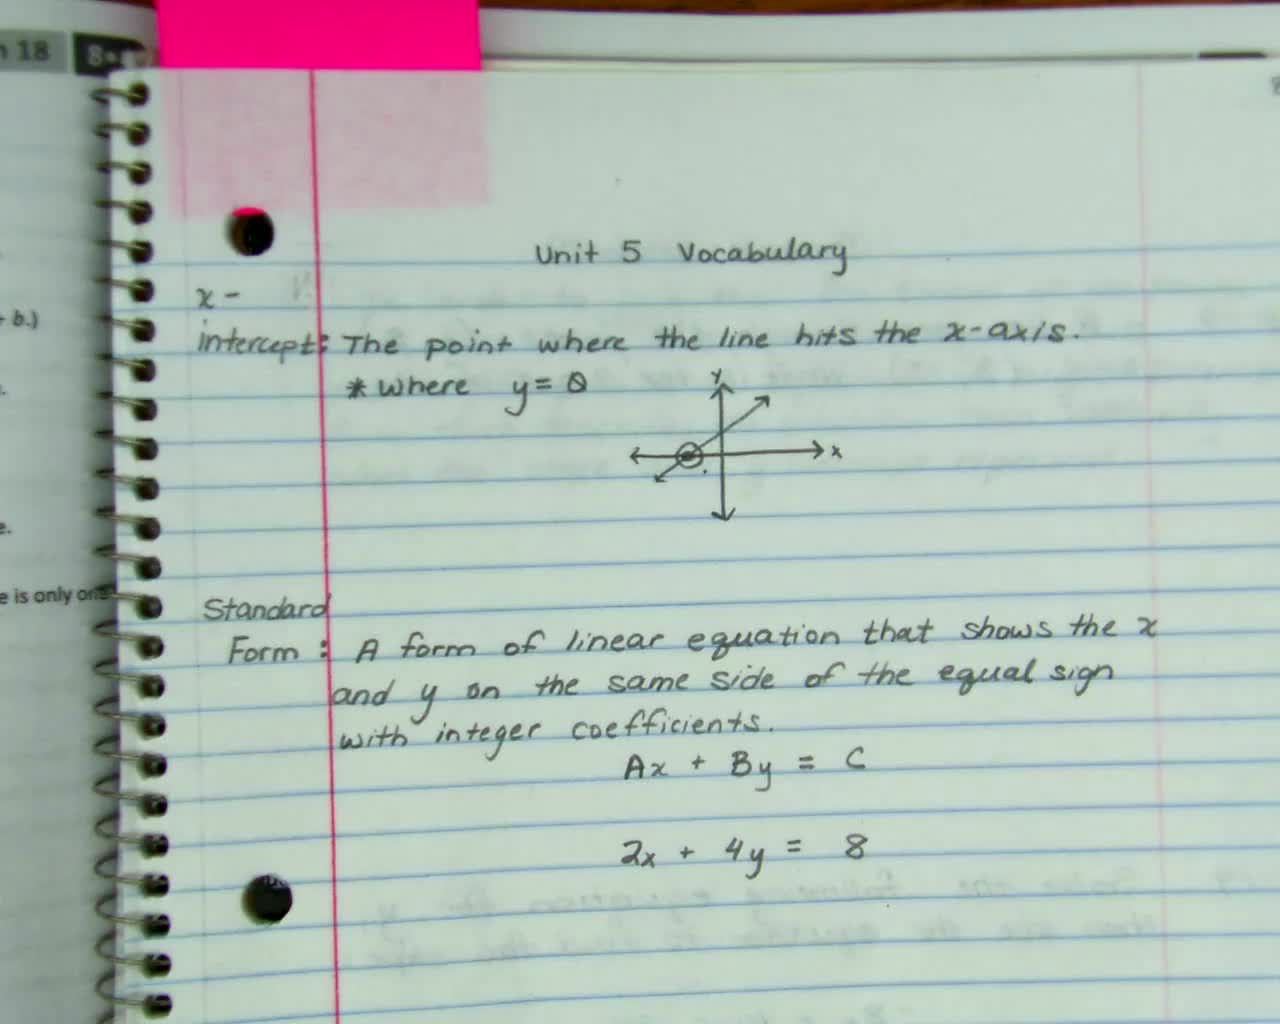 n 18
8•
+ b.)
e.
e is only one
Unit 5 Vocabulary
x-
intercept: The point where the line hits the x-axis.
* where y = 0
y
x
Standard
Form: A form of linear equation that shows the x
and y on the same side of the equal sign
with integer coefficients.
Ax + By = C
2x + 4y = 8